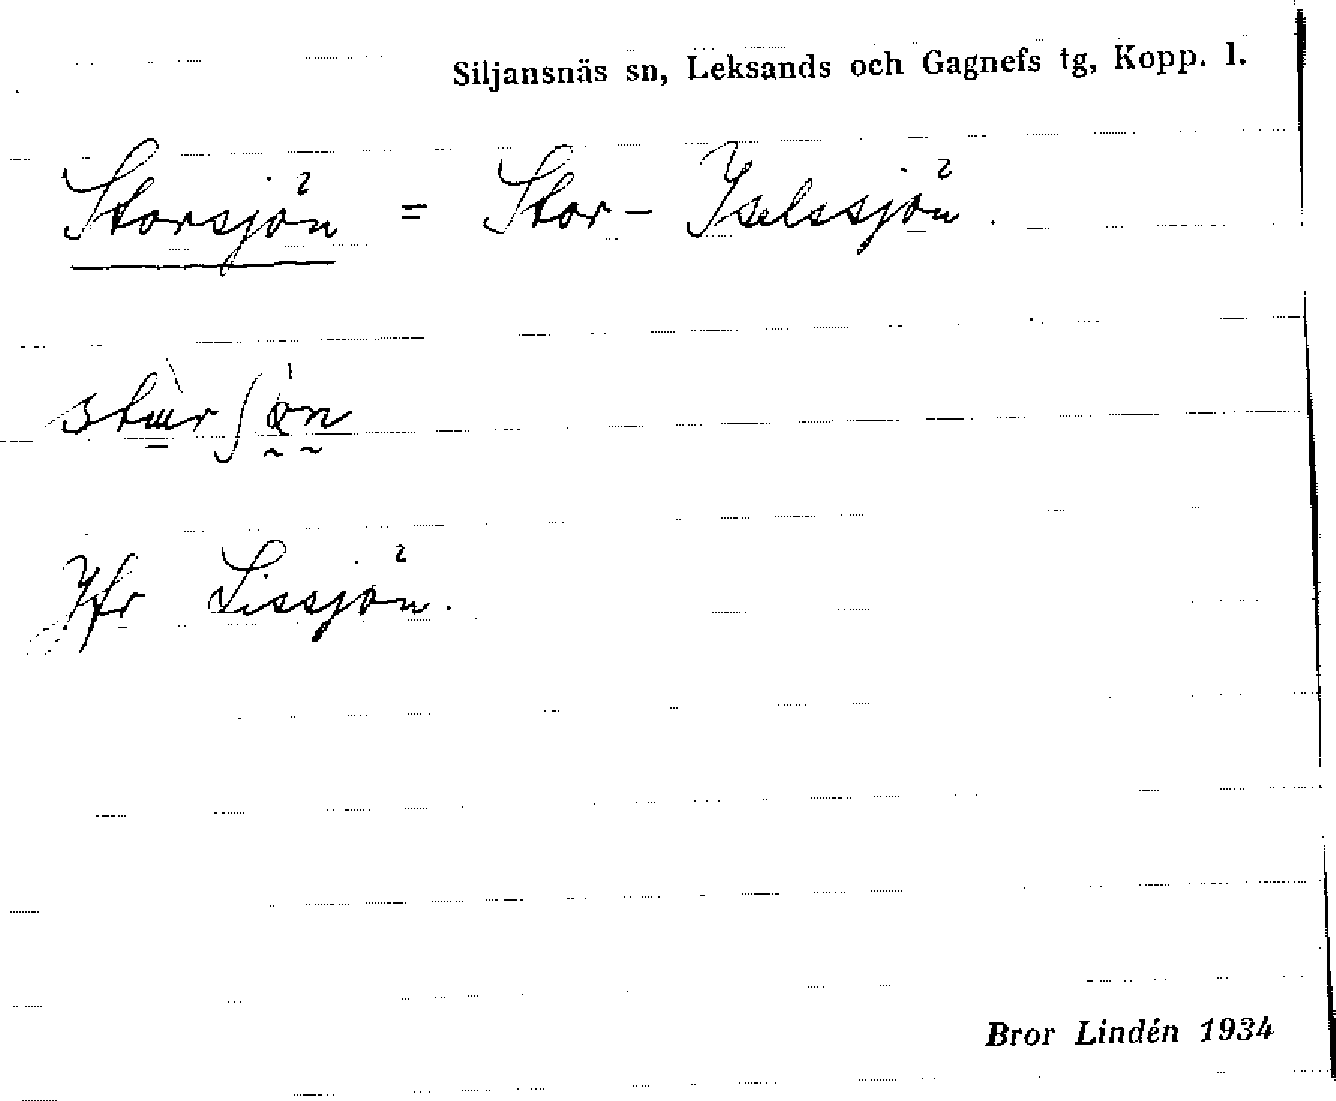 Siljansnäs sn, Leksands och Gagnefs tg, Kopp. l.
Storsjön = Stor-Yselssjön.
Jfr Lissjön.
Bror Lindén 1934